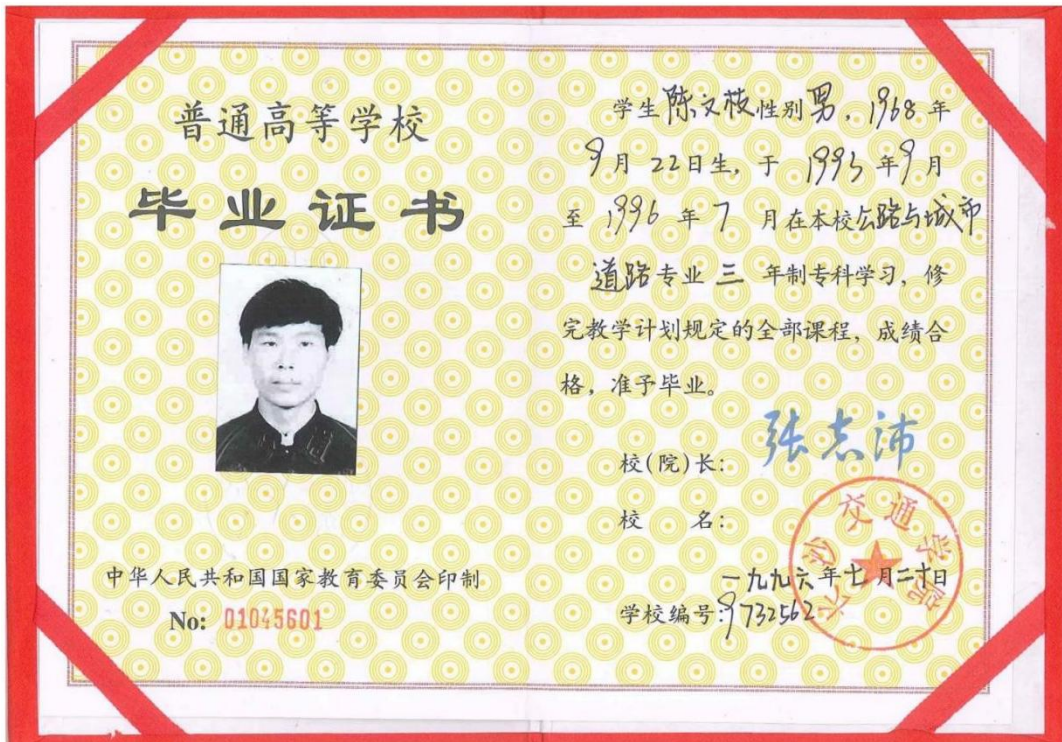 普通高等学校
毕业证书
中华人民共和国国家教育委员会印制
No: 01045601
学生陈文枝性别男,1968年
9月22日生,于1993年9月
至1996年7月在本校公路与城市
道路专业三年制专科学习,修
完教学计划规定的全部课程,成绩合
格,准予毕业。
校(院)长:张志沛
校 名:
长沙交通学院
一九九六年七月二十日
学校编号:9732562